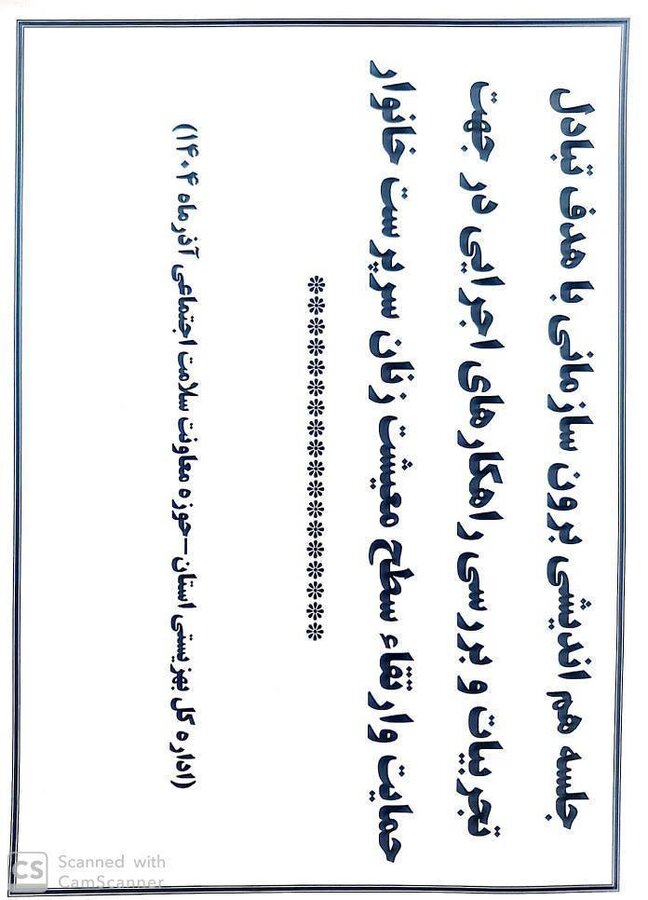 جلسه هم اندیشی برون سازمانی با هدف تبادل
تجربیات و بررسی راهکارهای اجرایی در جهت
حمایت وارتقاء سطح معیشت زنان سرپرست خانوار
******************
(اداره کل بهزیستی استان-حوزه معاونت سلامت اجتماعی آذرماه ۱۴۰۴)
CS Scanned with
CamScanner